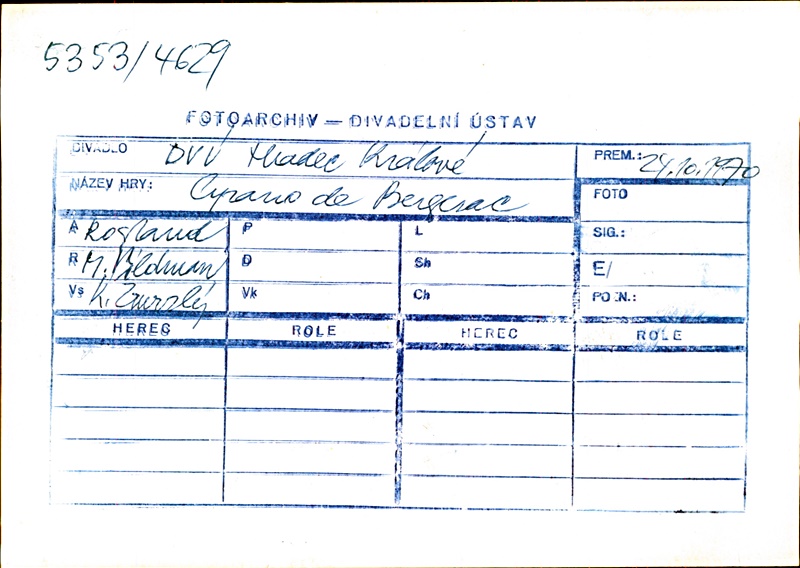 5353/4629
FOTOARCHIV — DIVADELNÍ ÚSTAV
DIVADLO DVÚ Hradec Králové
PREM.: 24.10.1970
NÁZEV HRY: Cyrano de Bergerac
FOTO
A Rostand P L SIG.:
R M. Vildman D Sh E/
Vs K. Zmrzlý Vk Ch POZN.:
HEREC ROLE HEREC ROLE